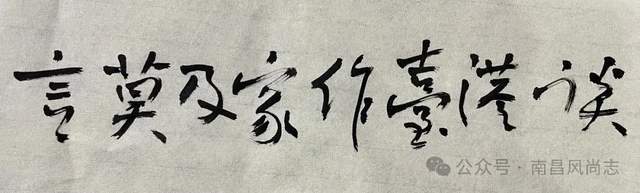 谈港臺作家及莫言
公众号·南昌风尚志